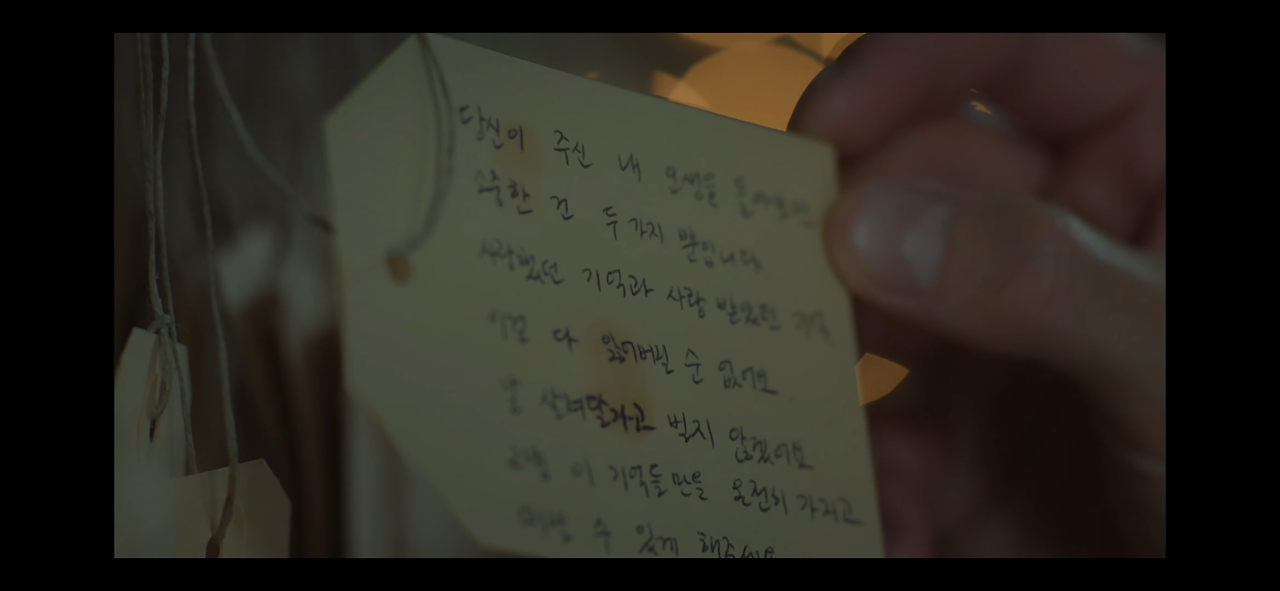 당신이 주신 내 인생을 돌아보면
소중한 건 두 가지 뿐입니다
사랑했던 기억과 사랑 받았던 기억
다 잃어버릴 순 없어요
날 살려달라고 빌지 않겠어요
이 기억들만을 온전히 가지고
수 있게 해주세요